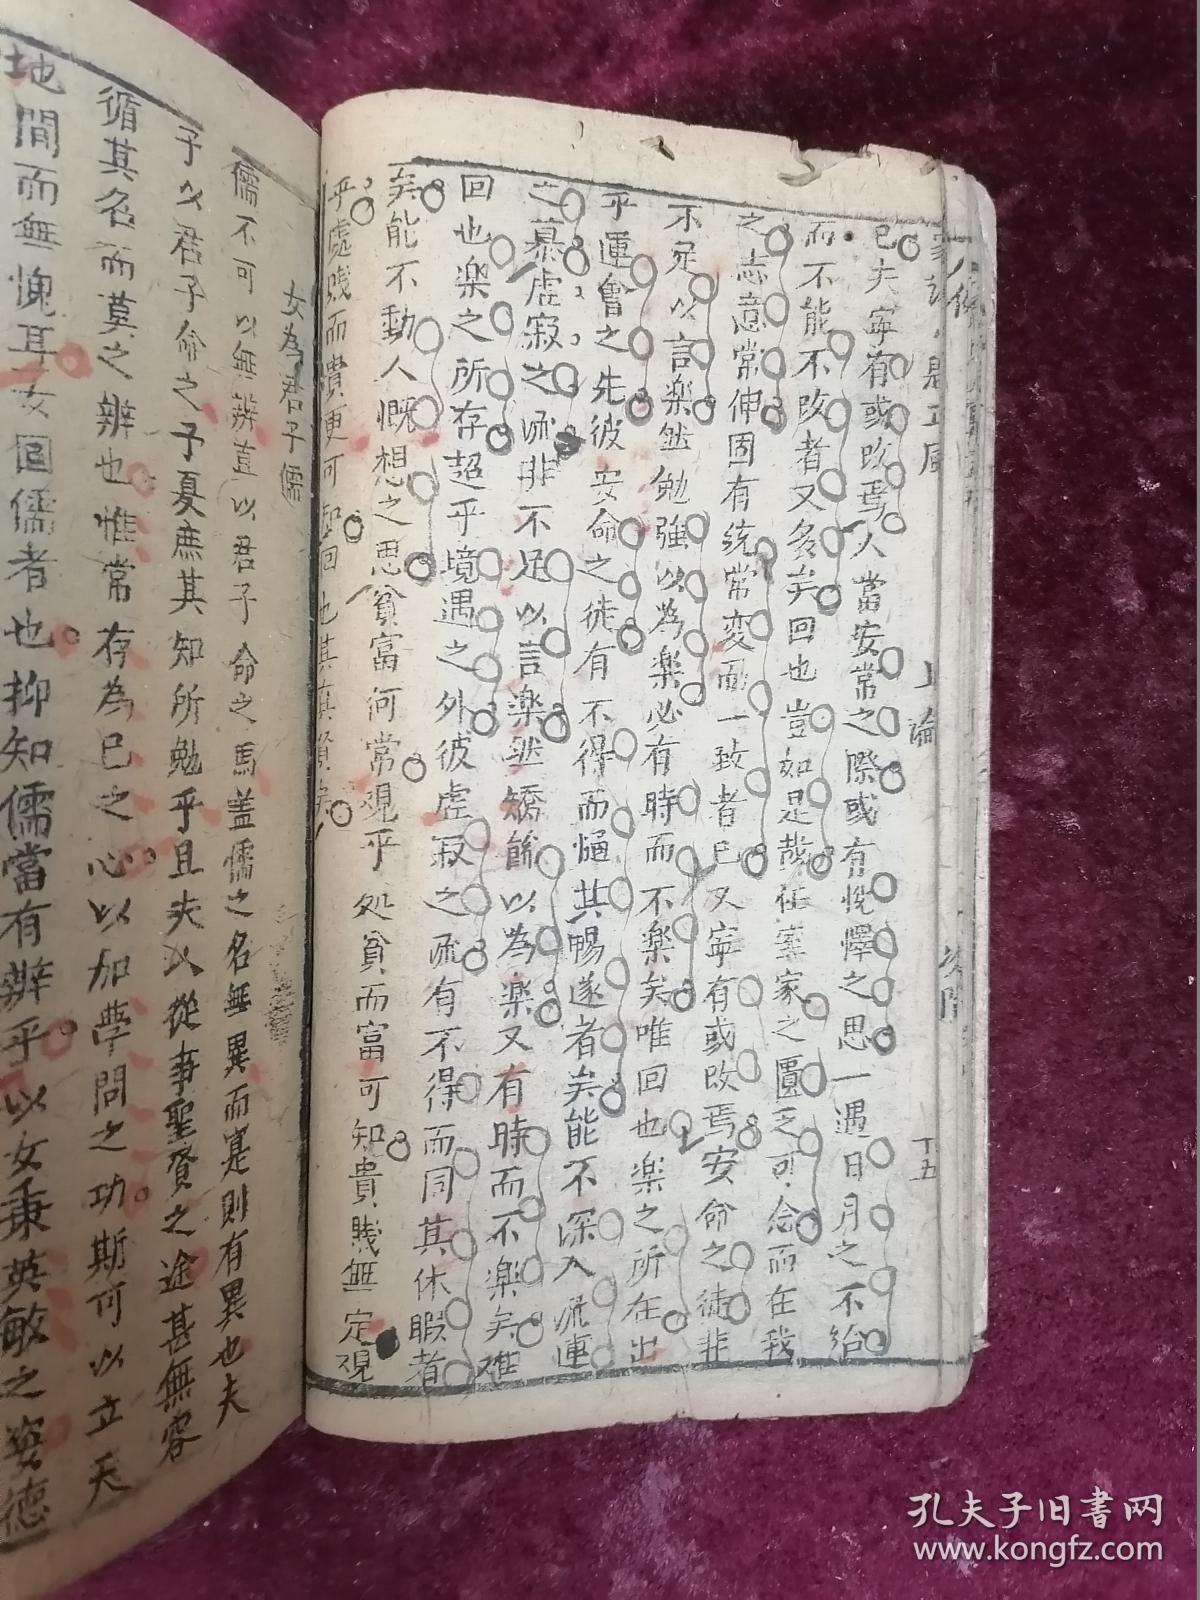 已夫寧有或改焉人當安常之際或有悅懌之思一遇日月之不給
而不能不改者又多矣回也豈如是哉任窶家之匱乏可念而在我
之志意常伸固有統常变而一致者已又寧有或改焉安命之徒非
不足以言楽然勉強以為楽必有時而不楽矣唯回也楽之所在出
乎運會之先彼安命之徒有不得而同其暢遂者矣能不深入流連
之慕虛寂之流非不足以言楽然矯餙以為楽又有時而不楽矣唯
回也楽之所存超乎境遇之外彼虛寂之流有不得而同其休暇者
矣能不動人慨想之思貧富何常观乎処貧而富可知貴賎無定观
乎處賎而貴更可知回也其真賢矣
女為君子儒
儒不可以無辨直以君子命之焉盖儒之名無異而寔則有異也夫
子以君子命之子夏庶其知所勉乎且夫以從事聖賢之途甚無容
循其名而莫之辨也惟常存為已之心以加學問之功斯可以立天
地間而無愧耳女固儒者也抑知儒當有辨乎以女秉英敏之姿德
上論
十五
孔夫子旧书网
www.kongfz.com